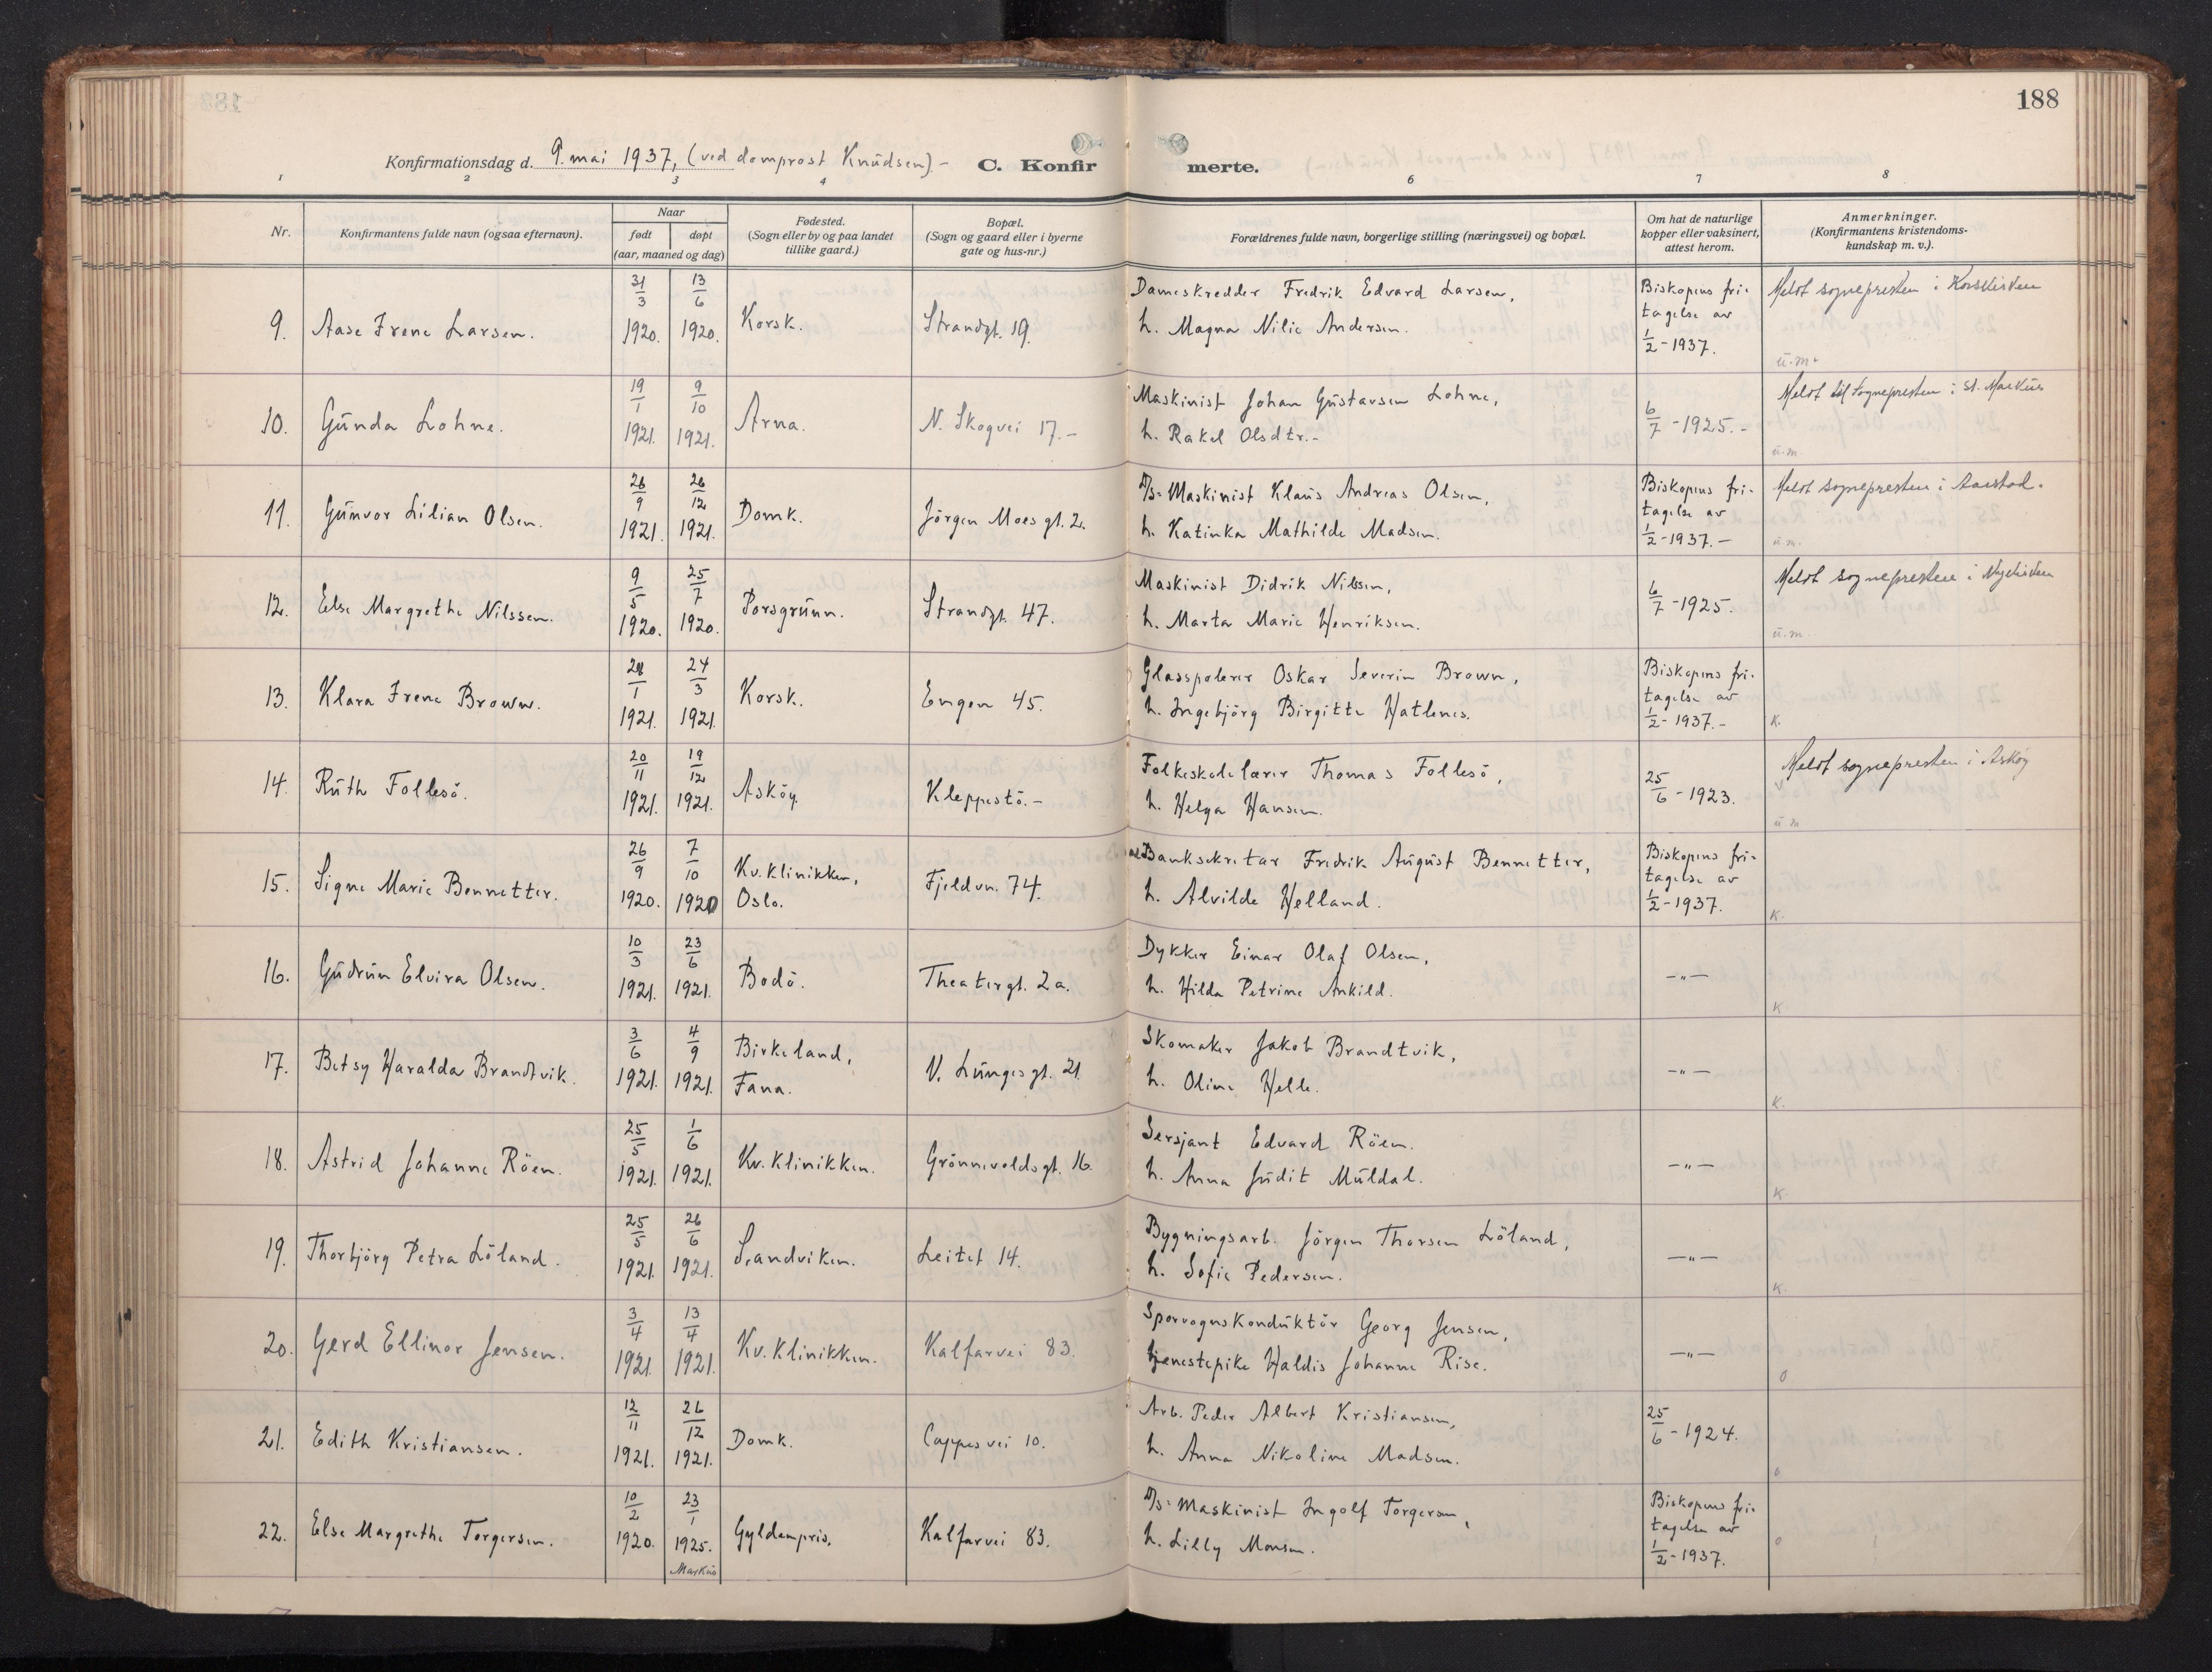 188
Konfirmationsdag d. 9. mai 1937, (ved domprost Knudsen). - C. Konfirmerte.
1 2 3 4 6 7 8
Nr.
Konfirmantens fulde navn (ogsaa efternavn).
Naar
født døpt
(aar, maaned og dag)
Fødested.
(Sogn eller by og paa landet
tillike gaard.)
Bopæl.
(Sogn og gaard eller i byerne
gate og hus-nr.)
Forældrenes fulde navn, borgerlige stilling (næringsvei) og bopæl.
Om hat de naturlige
kopper eller vaksinert,
attest herom.
Anmerkninger.
(Konfirmantens kristendoms-
kundskap m. v.).
9. Aase Irene Larsen. 31/3 1920. 13/6 1920. Korsk. Strandgt. 19.
Dameskredder Fredrik Edvard Larsen,
h. Magna Nilie Andersen.
Biskopens fri-
tagelse av
1/2-1937.
Meldt sognepresten i Korskirken
u.m.
10. Gunda Lohne. 19/1 1921. 9/10 1921. Arna. N. Skogvei 17.-
Maskinist Johan Gustavsen Lohne,
h. Rakel Olsdtr.-
6/7 -1925.-
Meldt til sognepresten i St. Markus
u.m.
11. Gunvor Lilian Olsen. 26/9 1921. 26/12 1921. Domk. Jörgen Moes gt. 2.
D/s= Maskinist Klaus Andreas Olsen,
h. Katinka Mathilde Madsen.
Biskopens fri-
tagelse av
1/2-1937.-
Meldt sognepresten i Aarstad.
u.m.
12. Else Margrethe Nilssen. 9/5 1920. 25/7 1920. Porsgrunn. Strandgt. 47.
Maskinist Didrik Nilssen,
h. Marta Marie Henriksen.
6/7 -1925.
Meldt sognepresten i Nykirken
u.m.
13. Klara Irene Brown. 28/1 1921. 24/3 1921. Korsk. Engen 45.
Glasspolerer Oskar Severin Brown,
h. Ingebjörg Birgitte Hatlenes.
Biskopens fri-
tagelse av
1/2-1937.-
K.
14. Ruth Follesö. 20/11 1921. 19/12 1921. Asköy. Kleppestö.-
Folkeskolelærer Thomas Follesö,
h. Helga Hansen.
25/6 -1923.
Meldt sognepresten i Asköy
u.m
15. Signe Marie Bennetter. 26/9 1920. 7/10 1920 Kv. klinikken,
Oslo. Fjeldvn. 74.
Banksekretær Fredrik August Bennetter,
h. Alvilde Helland.
Biskopens fri-
tagelse av
1/2-1937.
K.
16. Gudrun Elvira Olsen. 10/3 1921. 23/6 1921. Bodö. Theatergt. 2a.
Dykker Einar Olaf Olsen,
h. Hilda Petrine Ankild.
-"-
K.
17. Betsy Haralda Brandtvik. 3/6 1921. 4/9 1921. Birkeland,
Fana. V. Lunges gt. 21.
Skomaker Jakob Brandtvik,
h. Oline Helle.
-"-
K.
18. Astrid Johanne Röen. 25/5 1921. 1/6 1921. Kv. klinikken. Grönnevoldsgt. 16.
Sersjant Edvard Röen.
h. Anna Judit Muldal.
-"-
K.
19. Thorbjörg Petra Löland. 25/5 1921. 26/6 1921. Sandviken. Leitet 14.
Bygningsarb. Jörgen Thorsen Löland,
h. Sofie Pedersen.
-"-
K.
20. Gerd Ellinor Jensen. 3/4 1921. 13/4 1921. Kv. klinikken. Kalfarvei 83.
Sporvognskonduktör Georg Jensen,
tjenestepike Haldis Johanne Rise.
-"-
0
21. Edith Kristiansen. 12/11 1921. 26/12 1921. Domk. Cappesvei 10.
Arb. Peder Albert Kristiansen,
h. Anna Nikoline Madsen.
25/6 -1924.
0
22. Else Margrethe Torgersen. 10/2 1920. 23/1 1925. Markus Gyldenpris. Kalfarvei 83.
D/s= Maskinist Ingolf Torgersen,
h. Lilly Monsen.
Biskopens fri-
tagelse av
1/2-1937.
0